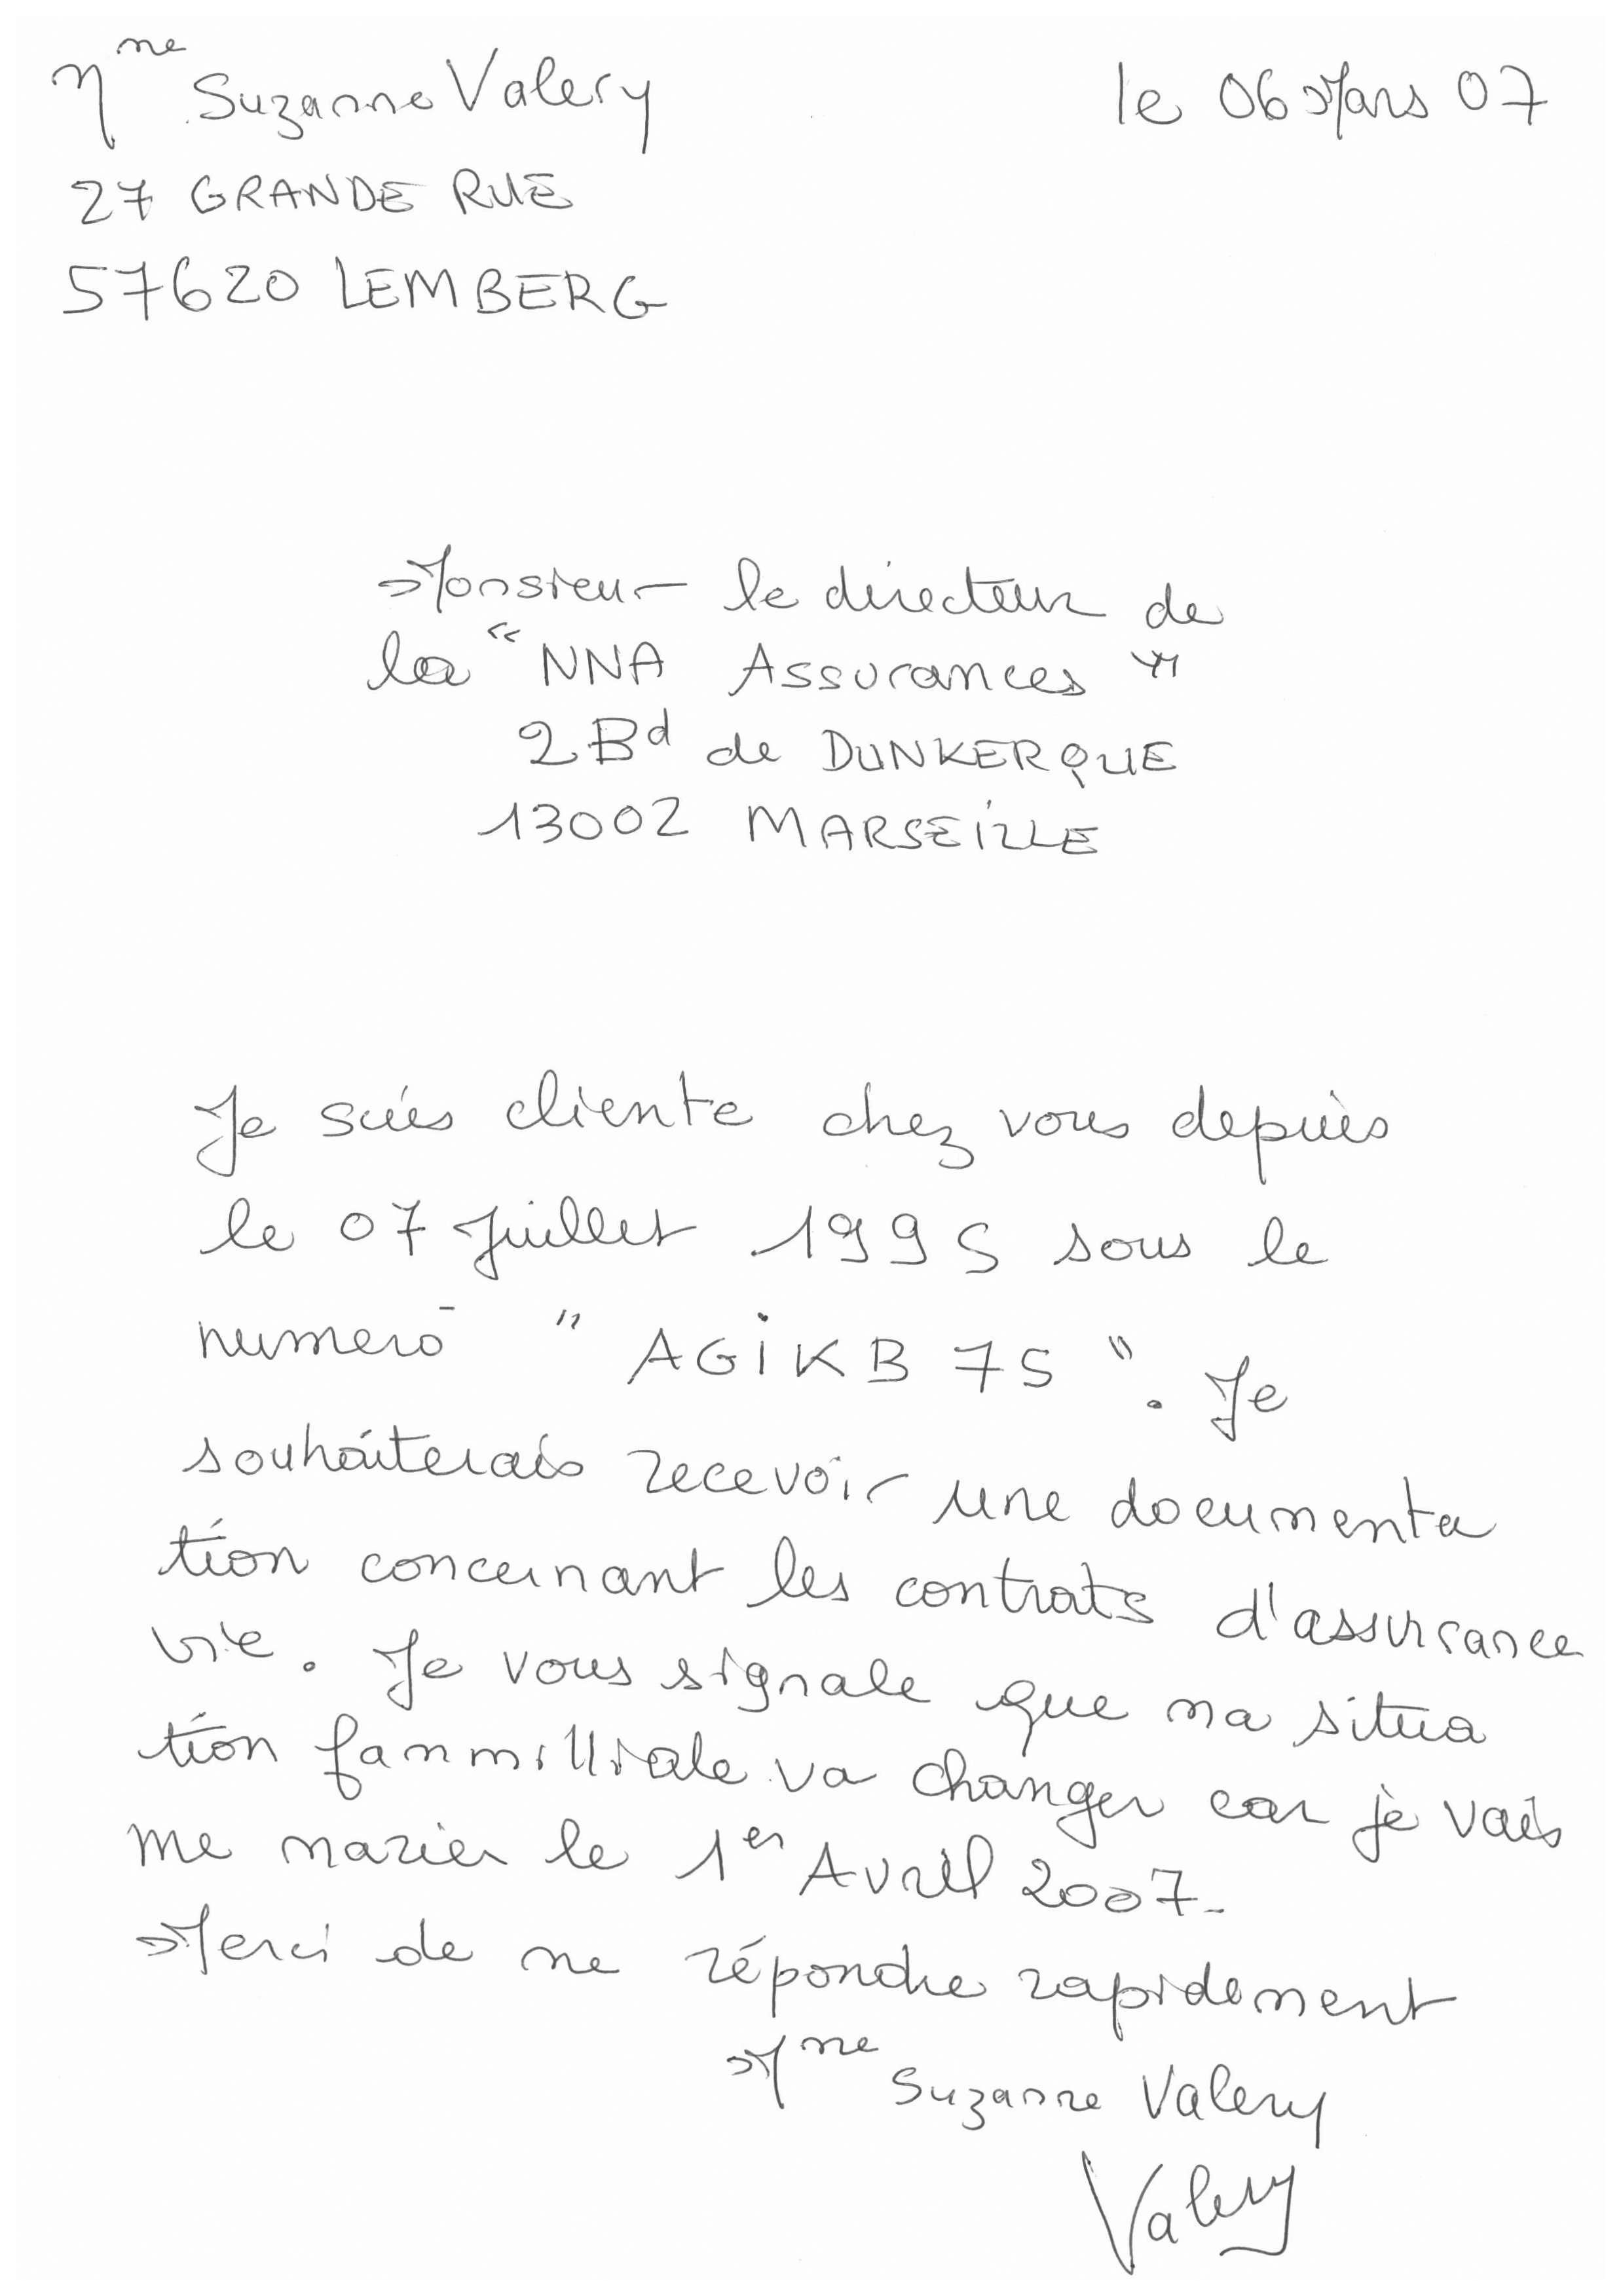 Mme Suzanne Valery
le 06 Mars 07
27 GRANDE RUE
57620 LEMBERG
Monsieur le directeur de
la "NNA Assurances"
2 Bd de DUNKERQUE
13002 MARSEILLE
Je suis cliente chez vous depuis
le 07 Juillet 1995 sous le
numero " AGIKB 75 ". Je
souhaiterais recevoir une documenta
tion concernant les contrats d'assurance
vie. Je vous signale que ma situa
tion fammilliale va changer car je vais
me marier le 1er Avril 2007-
Merci de me répondre rapidement
Mme Suzanne Valery
Valery